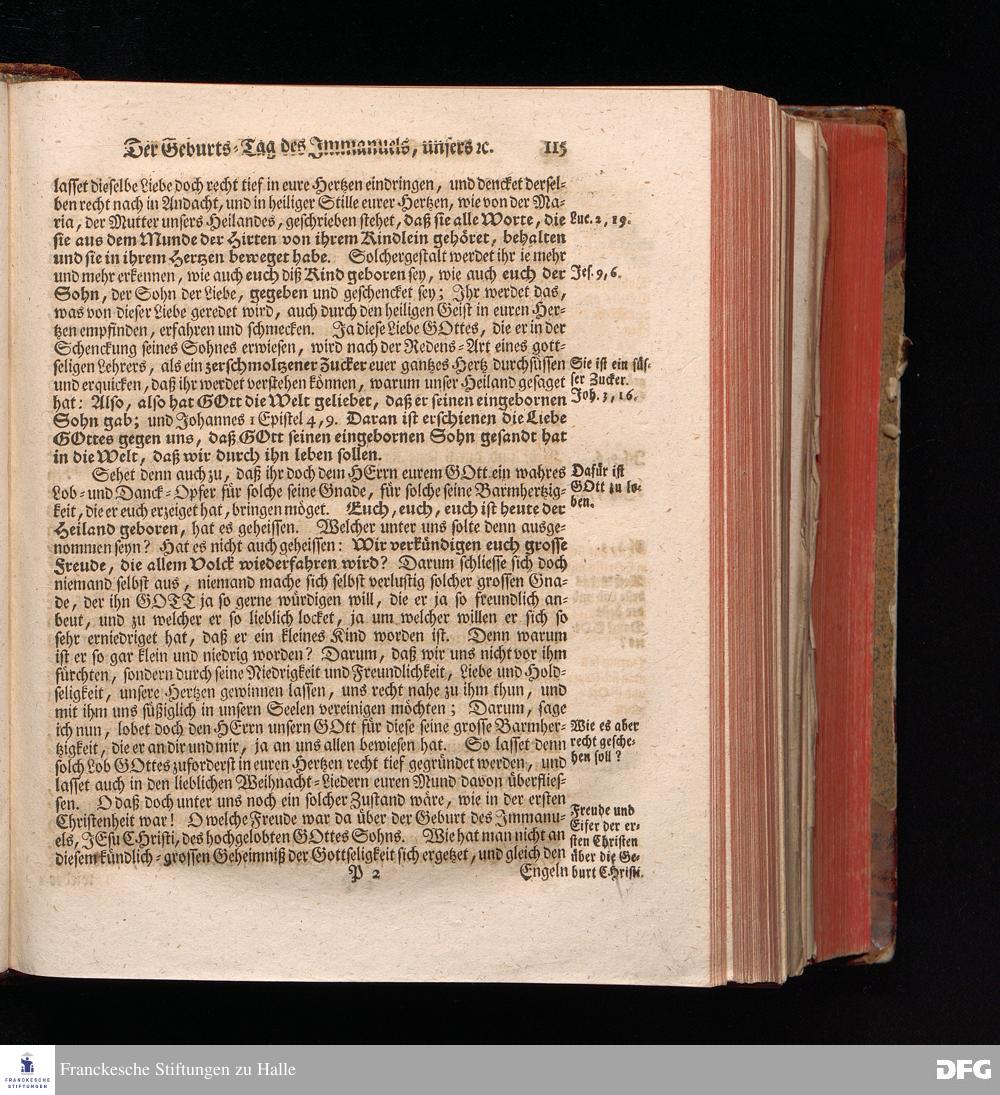 Der Geburts-Tag des Immanuels, unsers ꝛc. 115
lasset dieselbe Liebe doch recht tief in eure Hertzen eindringen, und dencket dersel-
ben recht nach in Andacht, und in heiliger Stille eurer Hertzen, wie von der Ma-
ria, der Mutter unsers Heilandes, geschrieben stehet, daß sie alle Worte, die
sie aus dem Munde der Hirten von ihrem Kindlein gehöret, behalten
und sie in ihrem Hertzen beweget habe. Solchergestalt werdet ihr ie mehr
und mehr erkennen, wie auch euch diß Kind geboren sey, wie auch euch der
Sohn, der Sohn der Liebe, gegeben und geschencket sey; Ihr werdet das,
was von dieser Liebe geredet wird, auch durch den heiligen Geist in euren Her-
tzen empfinden, erfahren und schmecken. Ja diese Liebe GOttes, die er in der
Schenckung seines Sohnes erwiesen, wird nach der Redens-Art eines gott-
seligen Lehrers, als ein zerschmoltzener Zucker euer gantzes Hertz durchsüssen
und erquicken, daß ihr werdet verstehen können, warum unser Heiland gesaget
hat: Also, also hat GOtt die Welt geliebet, daß er seinen eingebornen
Sohn gab; und Johannes 1 Epistel 4, 9. Daran ist erschienen die Liebe
GOttes gegen uns, daß GOtt seinen eingebornen Sohn gesandt hat
in die Welt, daß wir durch ihn leben sollen.
Sehet denn auch zu, daß ihr doch dem HErrn eurem GOtt ein wahres
Lob- und Danck-Opfer für solche seine Gnade, für solche seine Barmhertzig-
keit, die er euch erzeiget hat, bringen möget. Euch, euch, euch ist heute der
Heiland geboren, hat es geheissen. Welcher unter uns solte denn ausge-
nommen seyn? Hat es nicht auch geheissen: Wir verkündigen euch grosse
Freude, die allem Volck wiederfahren wird? Darum schliesse sich doch
niemand selbst aus, niemand mache sich selbst verlustig solcher grossen Gna-
de, der ihn GOTT ja so gerne würdigen will, die er ja so freundlich an-
beut, und zu welcher er so lieblich locket, ja um welcher willen er sich so
sehr erniedriget hat, daß er ein kleines Kind worden ist. Denn warum
ist er so gar klein und niedrig worden? Darum, daß wir uns nicht vor ihm
fürchten, sondern durch seine Niedrigkeit und Freundlichkeit, Liebe und Hold-
seligkeit, unsere Hertzen gewinnen lassen, uns recht nahe zu ihm thun, und
mit ihm uns süßiglich in unsern Seelen vereinigen möchten; Darum, sage
ich nun, lobet doch den HErrn unsern GOtt für diese seine grosse Barmher-
tzigkeit, die er an dir und mir, ja an uns allen bewiesen hat. So lasset denn
solch Lob GOttes zuforderst in euren Hertzen recht tief gegründet werden, und
lasset auch in den lieblichen Weihnacht-Liedern euren Mund davon überflies-
sen. O daß doch unter uns noch ein solcher Zustand wäre, wie in der ersten
Christenheit war! O welche Freude war da über der Geburt des Immanu-
els, JEsu CHristi, des hochgelobten GOttes Sohns. Wie hat man nicht an
diesem kündlich-grossen Geheimniß der Gottseligkeit sich ergetzet, und gleich den
P 2 Engeln
Luc. 2, 19.
Jes. 9, 6.
Sie ist ein süs-
ser Zucker.
Joh. 3, 16.
Dafür ist
GOtt zu lo-
ben.
Wie es aber
recht gesche-
hen soll?
Freude und
Eifer der er-
sten Christen
über die Ge-
burt CHristi.
FRANCKESCHE
STIFTUNGEN
Franckesche Stiftungen zu Halle
DFG